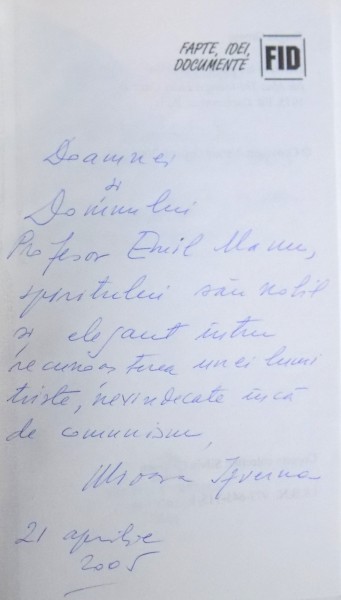 FAPTE, IDEI,
DOCUMENTE
FID
Doamnei
și
Domnului
Profesor Emil Manu,
spiritului său nobil
și elegant întru
recunoașterea unei lumi
triste, nevindecate încă
de comunism,
21 aprilie
2005